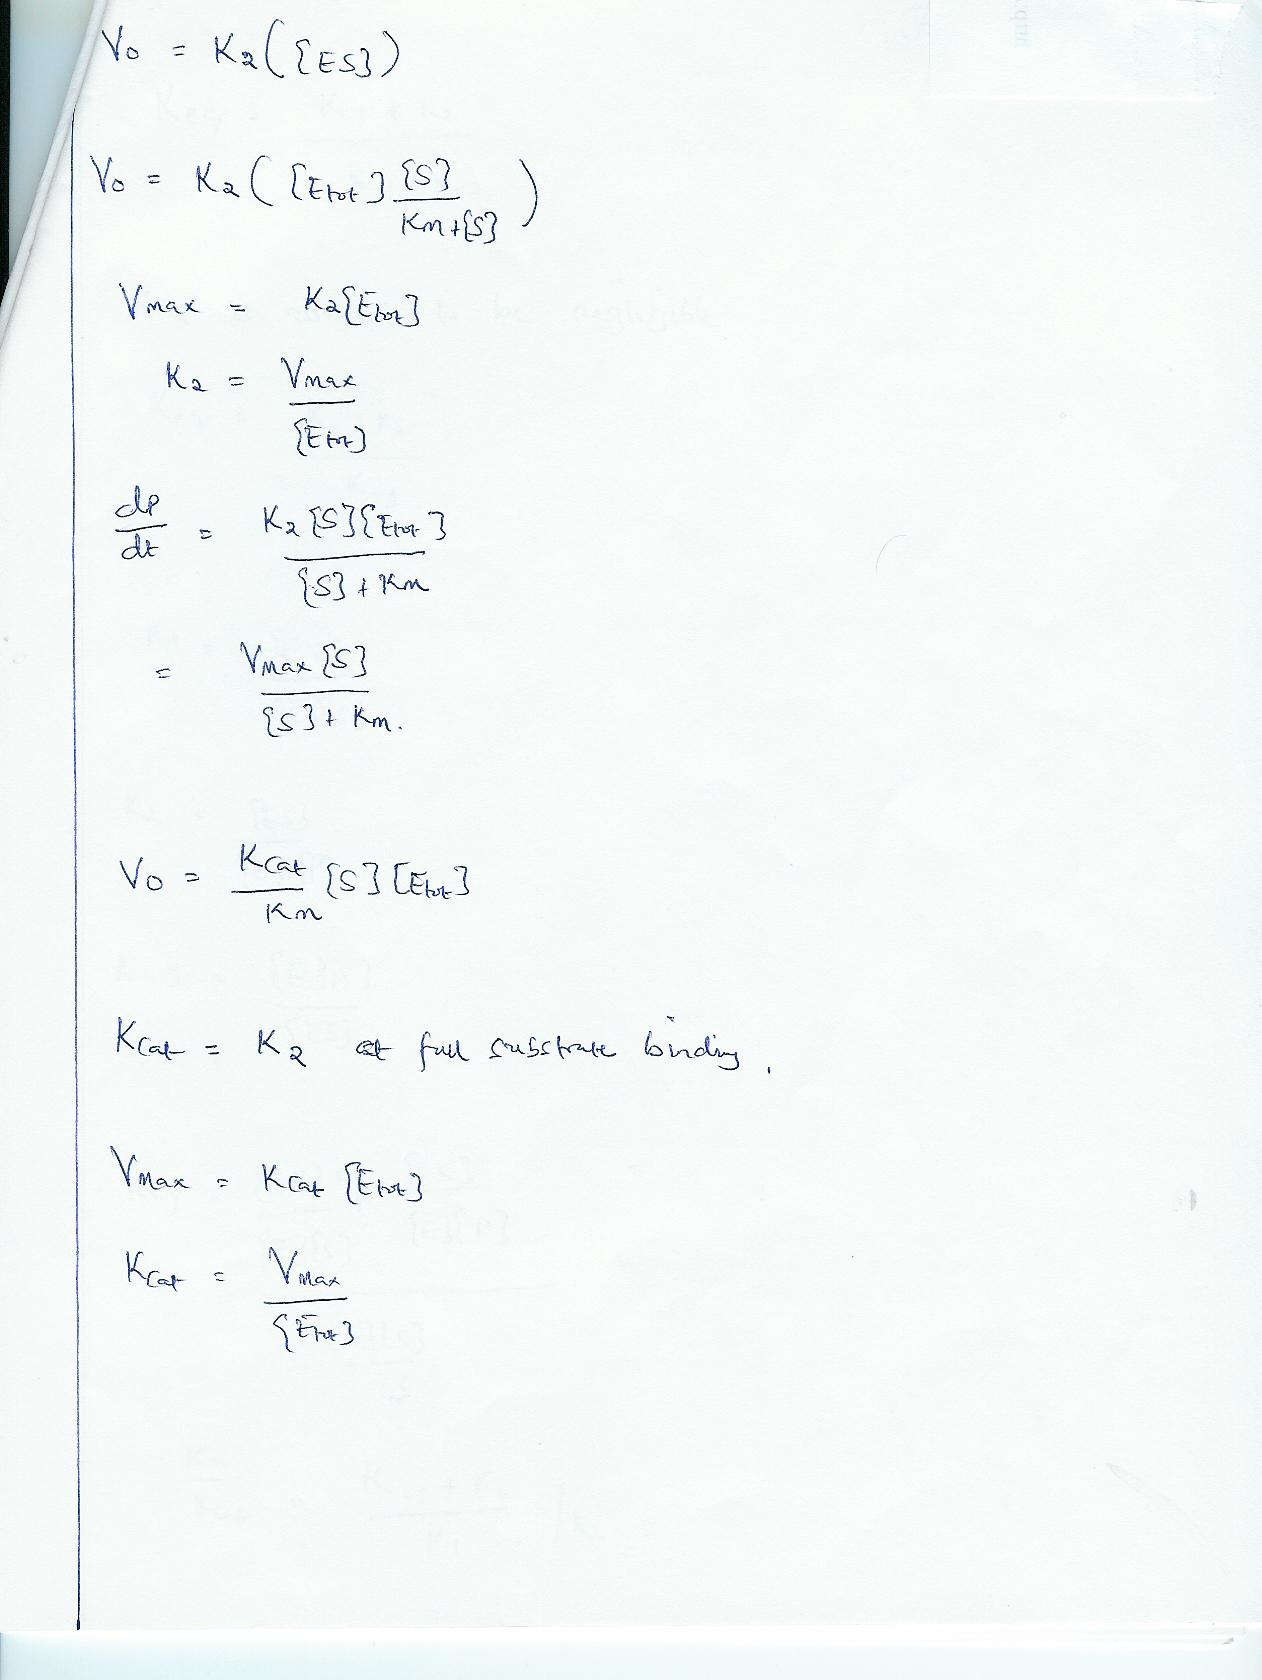 V₀ = K₂([ES])
V₀ = K₂([Etot] [S]
Km+[S])
Vmax = K₂[Etot]
K₂ = Vmax
[Etot]
dp
dt = K₂[S][Etot]
[S] + Km
= Vmax [S]
[S] + Km.
V₀ = Kcat [S][Etot]
Km
Kcat = K₂ at full substrate binding.
Vmax = Kcat [Etot]
Kcat = Vmax
[Etot]